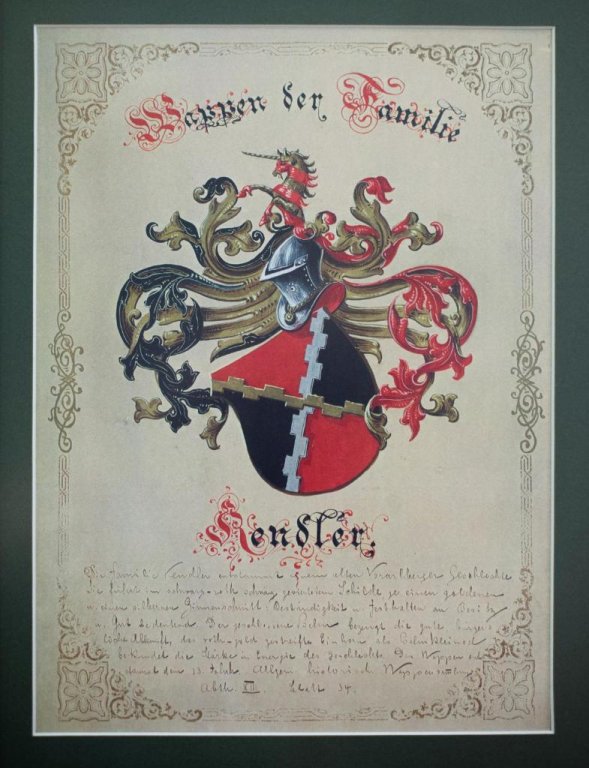 Wappen der Familie
Kendler:
Die Familie Kendler entstammt einem alten Vorarlberger Geschlechte
Sie führte im schwarz-roth schräg gevierteten Schilde je einen goldenen
u. einen silbernen Zinnenschnitt: Beständigkeit u. Festhalten an Besitz
u. Gut bedeutend Der geschlossene Helm bezeugt die gute bürger-
liche Abkunft, das rothgold gestreifte Einhorn als Helmkleinod
bekundet die Stärke u. Energie des Geschlechts Das Wappen
stammt dem 15. Jahrh. Allgem. historisch
Abth. XII